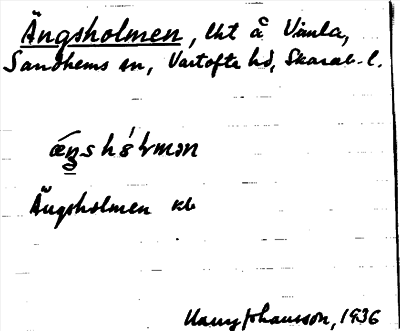 Ängsholmen, lht å Vånla,
Sandhems sn, Vartofta hd, Skarab. l.
ä́ŋs hɞ́lmən
Ängsholmen kb
Harry Johansson, 1936